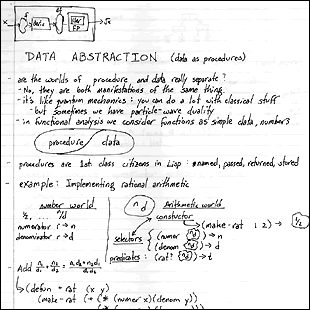 x
√x
FP
DATA ABSTRACTION (data as procedures)
- are the worlds of procedure and data really separate?
- No, they are both manifestations of the same thing.
- it's like quantum mechanics: you can do a lot with classical stuff
but sometimes we have particle-wave duality
- in functional analysis we consider functions as simple data, numbers
procedure data
- procedures are 1st class citizens in Lisp: named, passed, returned, stored
- example: Implementing rational arithmetic
number world
1/2, ... n/d
numerator r → n
denominator r → d
n d Arithmetic world
constructor
(make-rat 1 2) → 1/2
selectors (numer n/d) → n
(denom n/d) → d
predicates: (rat? n/d) → t
- Add n1/d1 + n2/d2 = n1d2 + n2d1 / d1d2
(defun +rat (x y)
(make-rat (+ (* (numer x)(denom y))